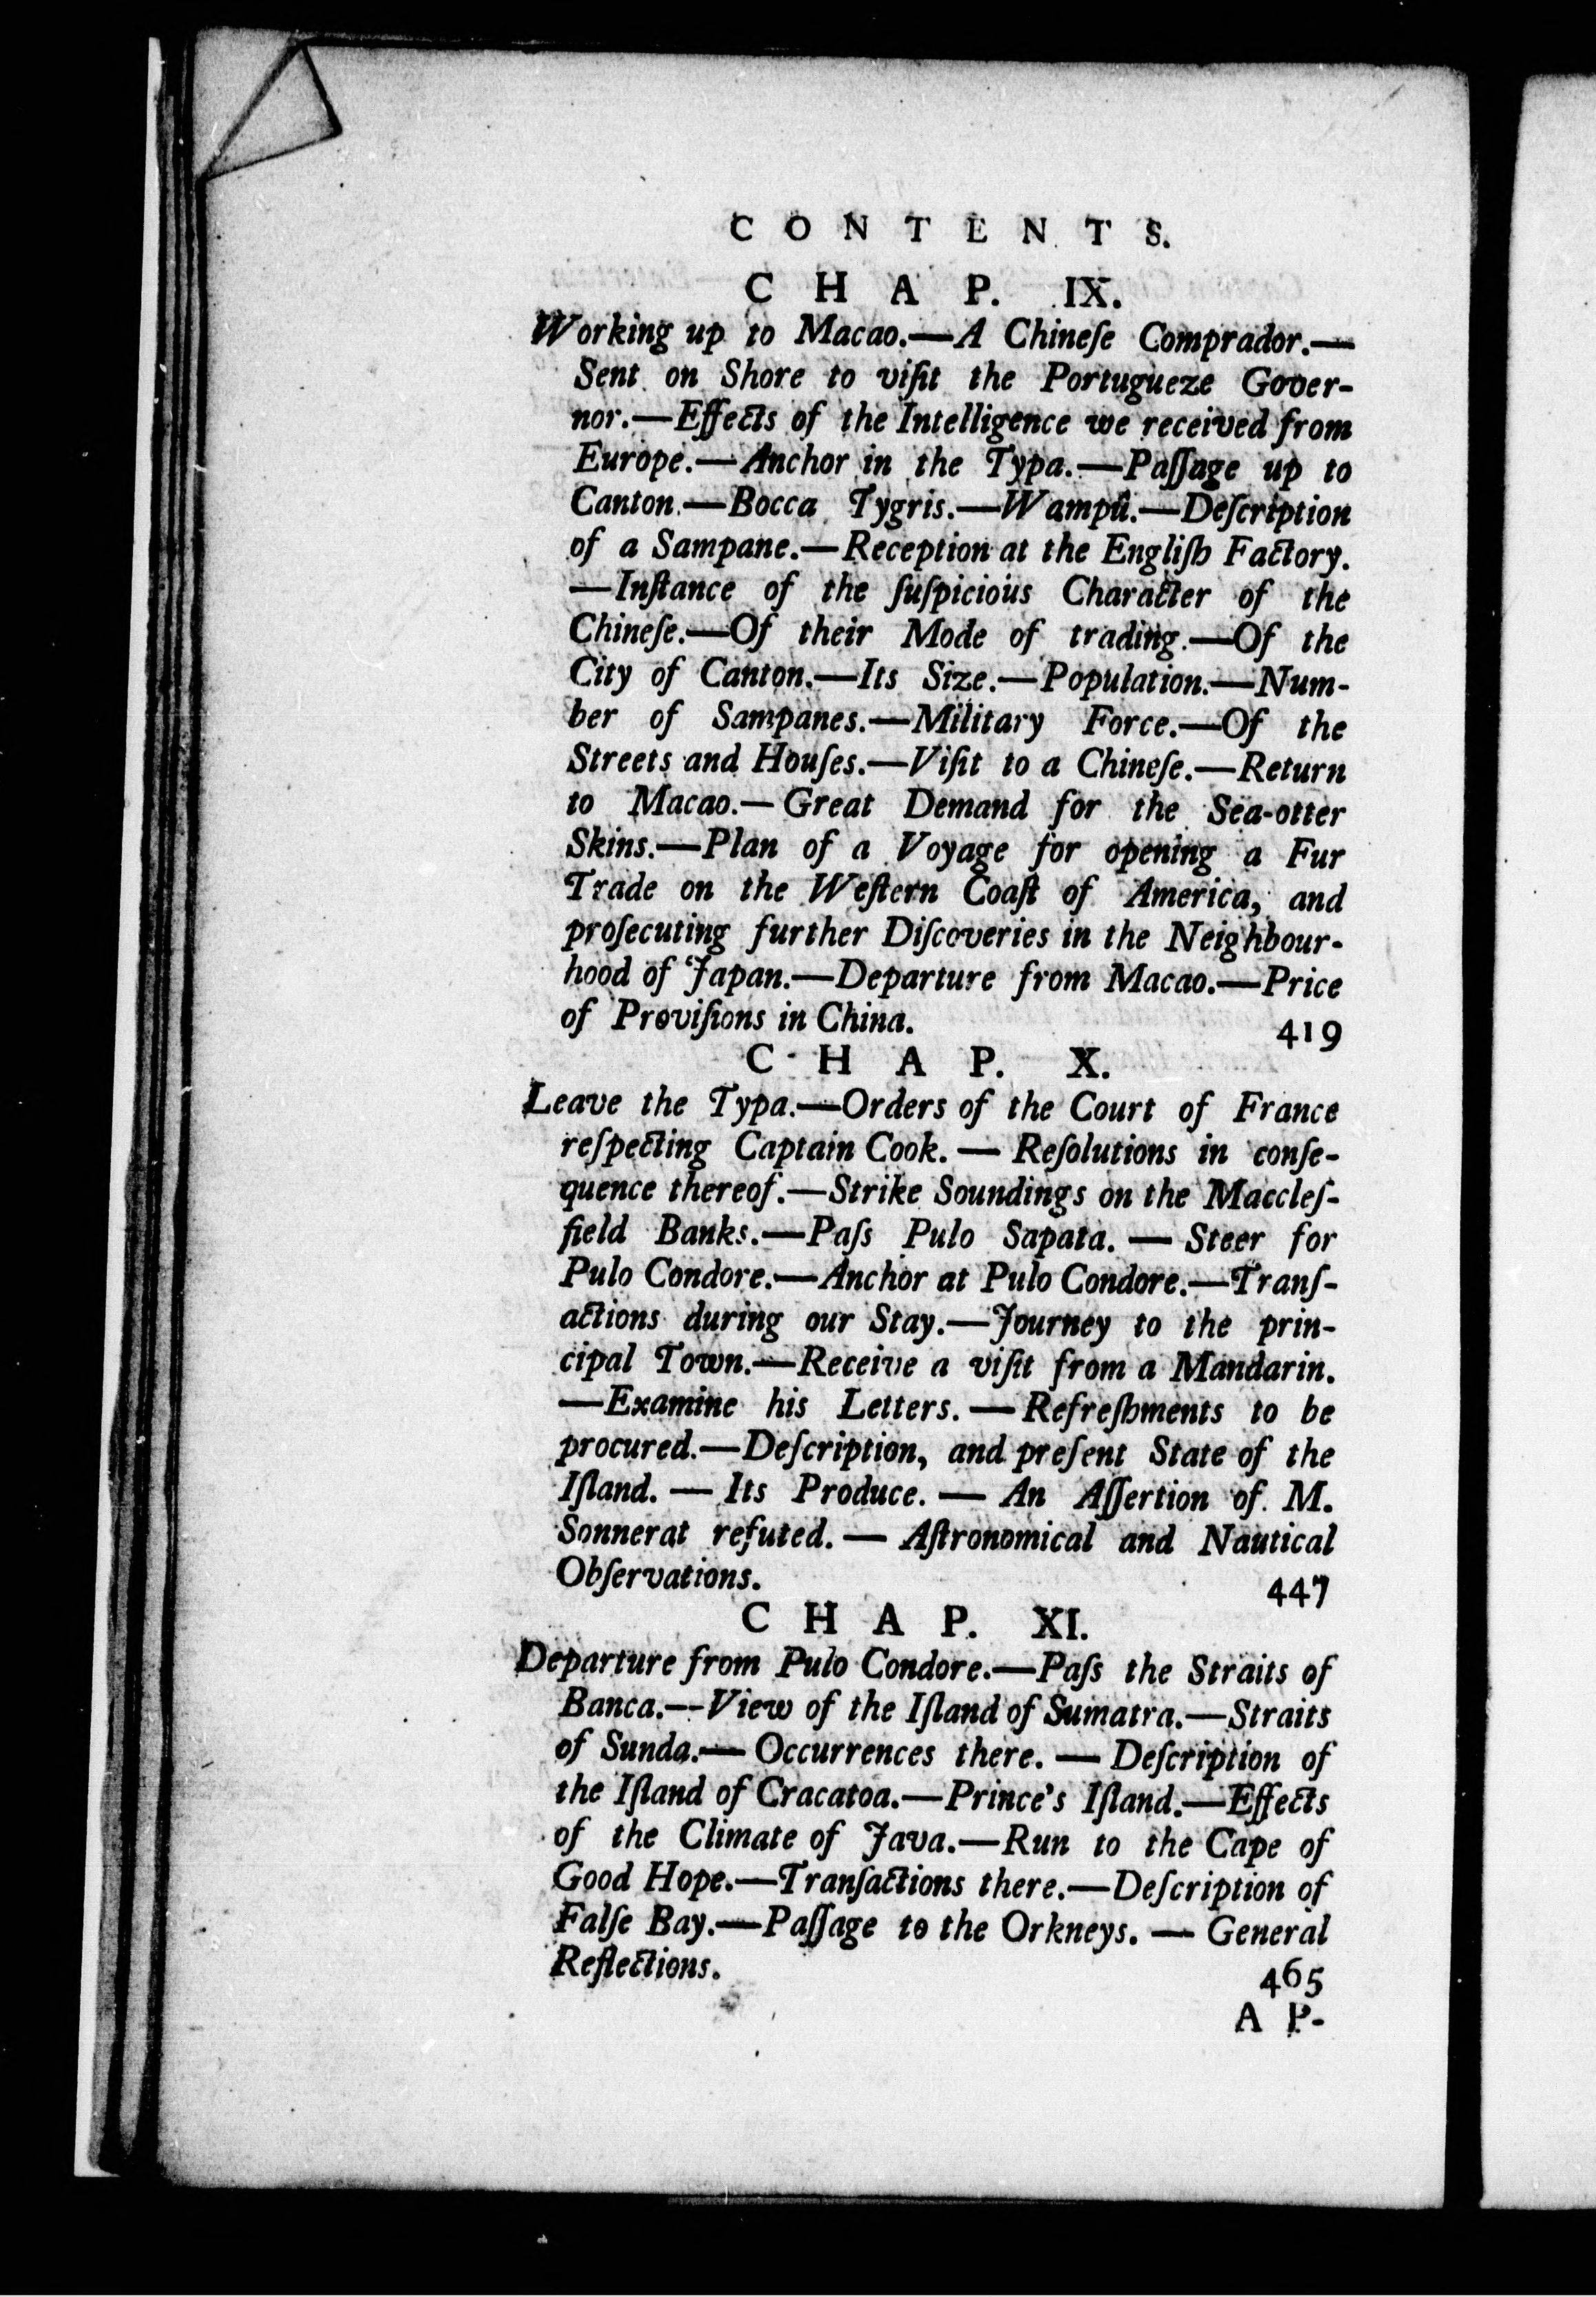 CONTENTS.
CHAP. IX.
Working up to Macao.—A Chineſe Comprador.—
Sent on Shore to viſit the Portugueze Gover-
nor.—Effects of the Intelligence we received from
Europe.—Anchor in the Typa.—Paſſage up to
Canton.—Bocca Tygris.—Wampû.—Deſcription
of a Sampane.—Reception at the Engliſh Factory.
—Inſtance of the ſuſpicious Character of the
Chineſe.—Of their Mode of trading.—Of the
City of Canton.—Its Size.—Population.—Num-
ber of Sampanes.—Military Force.—Of the
Streets and Houſes.—Viſit to a Chineſe.—Return
to Macao.—Great Demand for the Sea-otter
Skins.—Plan of a Voyage for opening a Fur
Trade on the Weſtern Coaſt of America, and
proſecuting further Diſcoveries in the Neighbour-
hood of Japan.—Departure from Macao.—Price
of Proviſions in China. 419
CHAP. X.
Leave the Typa.—Orders of the Court of France
reſpecting Captain Cook.—Reſolutions in conſe-
quence thereof.—Strike Soundings on the Maccleſ-
field Banks.—Paſs Pulo Sapata.—Steer for
Pulo Condore.—Anchor at Pulo Condore.—Tranſ-
actions during our Stay.—Journey to the prin-
cipal Town.—Receive a viſit from a Mandarin.
—Examine his Letters.—Refreſhments to be
procured.—Deſcription, and preſent State of the
Iſland.—Its Produce.—An Aſſertion of M.
Sonnerat refuted.—Aſtronomical and Nautical
Obſervations. 447
CHAP. XI.
Departure from Pulo Condore.—Paſs the Straits of
Banca.—View of the Iſland of Sumatra.—Straits
of Sunda.—Occurrences there.—Deſcription of
the Iſland of Cracatoa.—Prince's Iſland.—Effects
of the Climate of Java.—Run to the Cape of
Good Hope.—Tranſactions there.—Deſcription of
Falſe Bay.—Paſſage to the Orkneys.—General
Reflections. 465
AP-